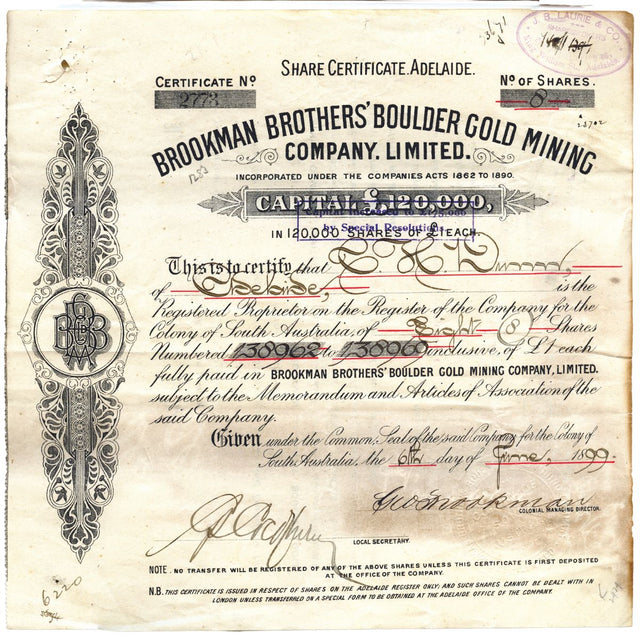 J. B. LAURIE & CO.
SHARE CERTIFICATE. ADELAIDE.
CERTIFICATE No
2773
No OF SHARES.
8
BROOKMAN BROTHERS' BOULDER GOLD MINING
COMPANY. LIMITED.
1253
INCORPORATED UNDER THE COMPANIES ACTS 1862 TO 1890.
CAPITAL £120,000,
Capital Increased to
by Special Resolution
IN 120,000 SHARES OF £1 EACH.
This is to certify that C. H.
of Adelaide, is the
Registered Proprietor on the Register of the Company for the
Colony of South Australia, of Eight (8) Shares
Numbered 138962 to 138969 inclusive, of £1 each
fully paid in BROOKMAN BROTHERS' BOULDER GOLD MINING COMPANY, LIMITED.
subject to the Memorandum and Articles of Association of the
said Company.
Given under the Common Seal of the said Company for the Colony of
South Australia, the 6th day of June, 1899.
Geo Brookman
COLONIAL MANAGING DIRECTOR.
LOCAL SECRETARY.
NOTE. NO TRANSFER WILL BE REGISTERED OF ANY OF THE ABOVE SHARES UNLESS THIS CERTIFICATE IS FIRST DEPOSITED
AT THE OFFICE OF THE COMPANY.
N.B. THIS CERTIFICATE IS ISSUED IN RESPECT OF SHARES ON THE ADELAIDE REGISTER ONLY; AND SUCH SHARES CANNOT BE DEALT WITH IN
LONDON UNLESS TRANSFERRED ON A SPECIAL FORM TO BE OBTAINED AT THE ADELAIDE OFFICE OF THE COMPANY.
6220